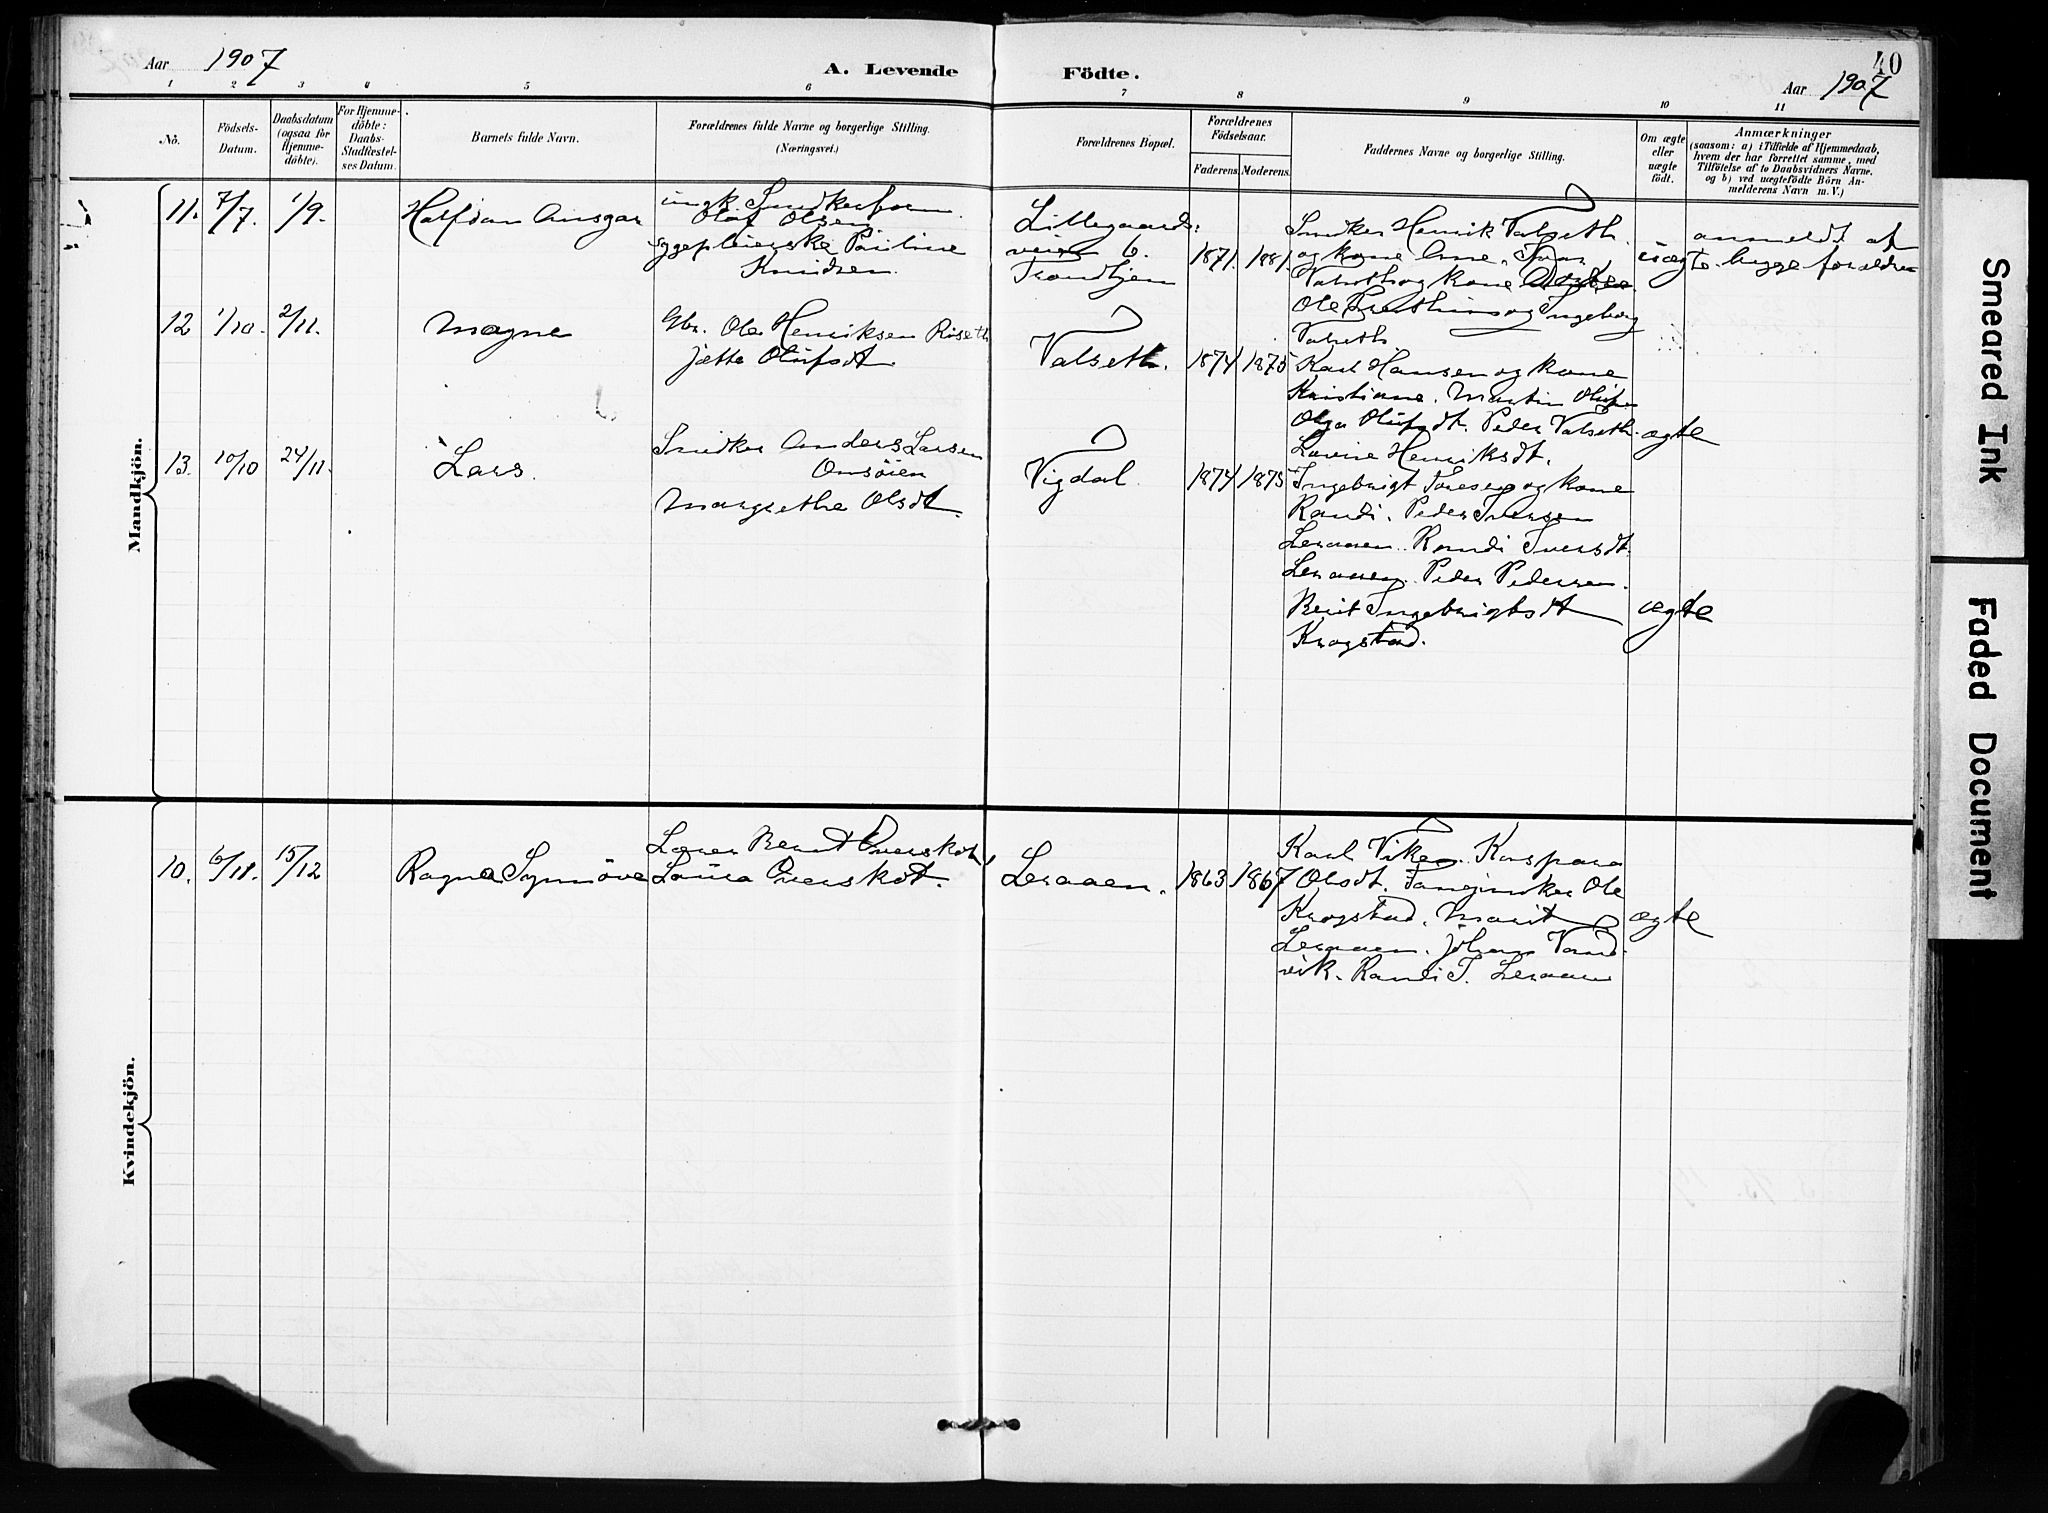 Aar 1907
A. Levende
Födte.
40
Aar 1907
1 2 3 4 5 6 7 8 9 10 11
No.
Födsels-
Datum.
Daabsdatum
(ogsaa for
Hjemme-
döbte).
For Hjemme-
döbte:
Daabs-
Stadfæstel-
ses Datum.
Barnets fulde Navn.
Forældrenes fulde Navne og borgerlige Stilling.
(Næringsvei.)
Forældrenes Bopæl.
Forældrenes
Födselsaar.
Faderens. Moderens.
Faddernes Navne og borgerlige Stilling.
Om ægte
eller
uægte
födt.
Anmærkninger
(saasom: a) i Tilfælde af Hjemmedaab,
hvem der har forrettet samme, med
Tilföielse af to Daabsvidners Navne,
og b) ved uægtefödte Börn An-
melderens Navn m. V.)
Mandkjön.
11. 7/7. 1/9. Halfdan Ansgar
ungk. Snedkerform.
Olaf Olsen
sygepleierske Pauline
Knudsen.
Lillegaards-
veien 6.
Trondhjem
1871. 1881.
Snedker Henrik Valseth
og kone Ane. Ivar
Valseth og kone
Ole og Ingeborg
Valseth
uægte.
anmeldt af
begge forældre
12 1/10. 2/11. Magne
Gbr. Ole Henriksen Riseth
Jette Olufsdt
Valseth. 1874 1875
Karl Hansen og kone
Kristiane. Martin Olufsen
Olga Olufsdt. Peder Valseth.
Lovine Henriksdt.
ægte
13. 10/10 24/11. Lars.
Snedker Anders Larsen
Omsöien
Margrethe Olsdt.
Vigdal. 1874 1875
Ingebrigt Toresen og kone
Randi. Peder Iversen
Leraaen. Randi Iversdt.
Leraaen. Peder Pedersen.
Berit Ingebrigtsdt
Krogstad.
ægte
Kvindekjön.
10. 6/11. 15/12 Ragna Synnöve
Lærer Bernt Overskot,
Laura Overskot.
Leraaen. 1863 1867
Karl Viken. Kaspara
Olsdt. Ole
Krogstad. Marit
Leraaen. Johan Vand-
vik. Randi I. Leraaen
ægte
Smeared Ink
Faded Document